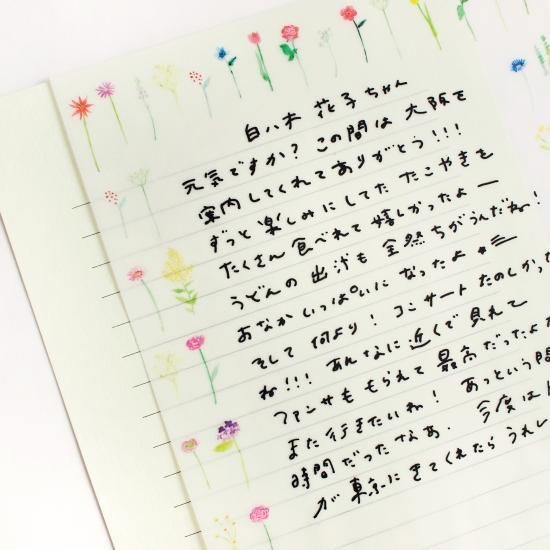 白八木 花子ちゃん
元気ですか? この間は 大阪を
案内してくれてありがとう!!!
ずっと楽しみにしてた たこやきを
たくさん食べれて嬉しかったよー
うどんの出汁も全然ちがうんだね!
おなかいっぱいになったよ
そして何より! コンサートたのしかった
ね!!! あんなに近くで見れて
ファンサももらえて最高だったよ
また行きたいね! あっという間
時間だったなあ. 今度は
が東京にきてくれたらうれし